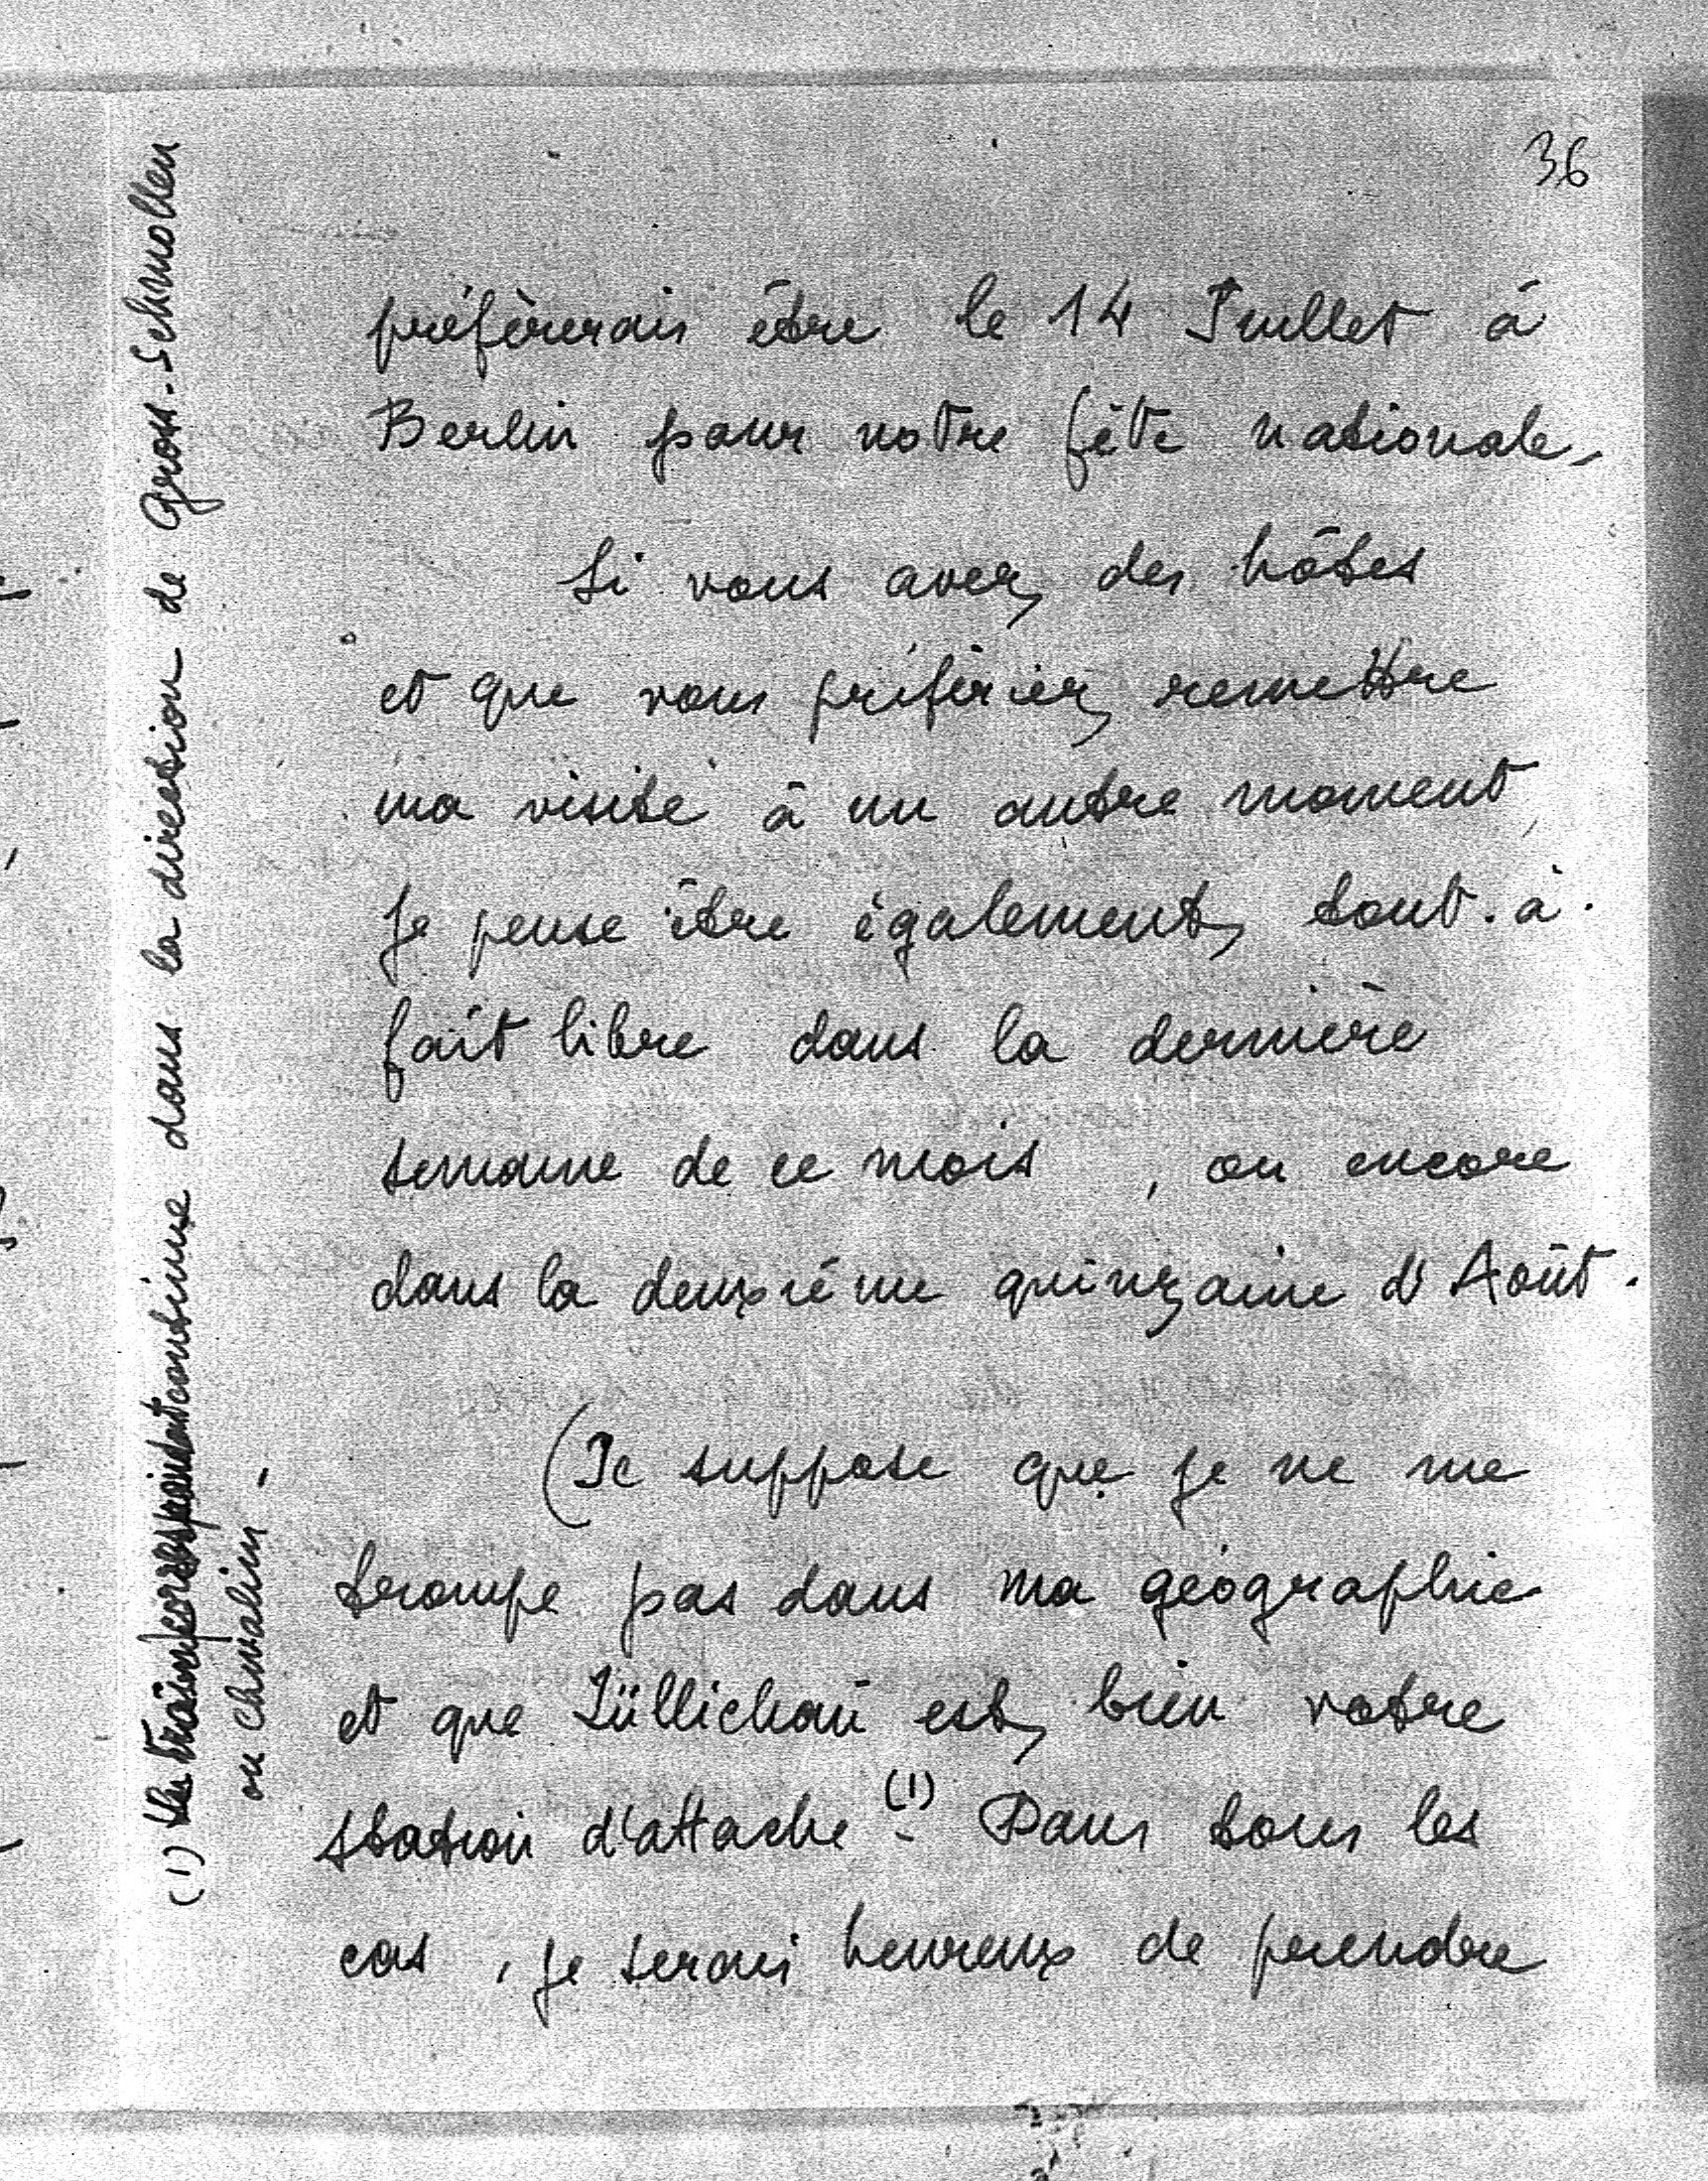 36
préfèrerais être le 14 Juillet à
Berlin pour notre fête nationale.
Si vous avez des hôtes
et que vous préfériez remettre
ma visite à un autre moment,
je pense être également tout-à-
fait libre dans la dernière
semaine de ce mois, ou encore
dans la deuxième quinzaine d'Août.
(Je suppose que je ne me
trompe pas dans ma géographie
et que Züllichau est bien votre
station d'attache (1). Dans tous les
cas, je serai heureux de prendre
(1) continue dans la direction de Gross-Schmollen
ou Chwalim.